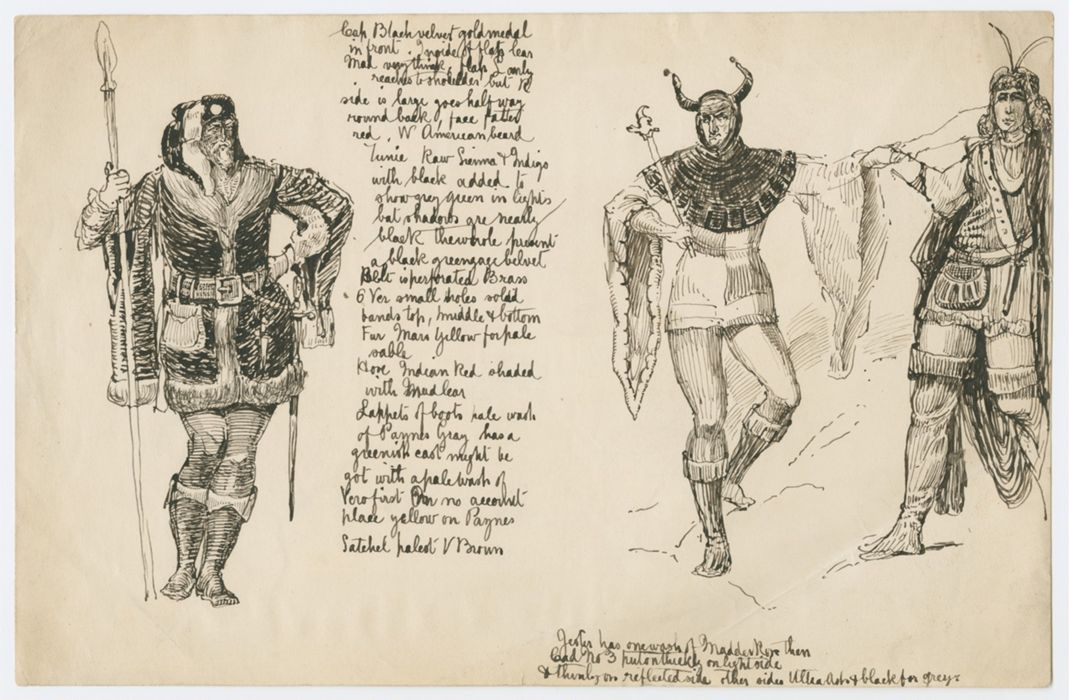 Cap Black velvet gold medal
in front. Inside of flaps lear
Mad very think, flap L only
reaches to sholder but R
side is large goes half way
round back, face fatter
red, W American beard
Tunic Raw Sienna & Indigo
with black added to
show grey green in lights
but shadows are nearly
black the whole present
a black greengage velvet
Belt is perforated Brass
6 Ver small holes solid
bands top, middle & bottom
Fur Mars Yellow for pale
sable
Hose Indian Red shaded
with Mad lear
Lappets of boots pale wash
of Paynes Gray has a
greenish cast might be
got with a pale wash of
Vero first On no account
place yellow on Paynes
Satchel palest V Brown
Jester has one wash of Madder Rose then
Cad No 3 put on thickly on light side
& thinly on reflected side other sides Ultra Ash & black for greys